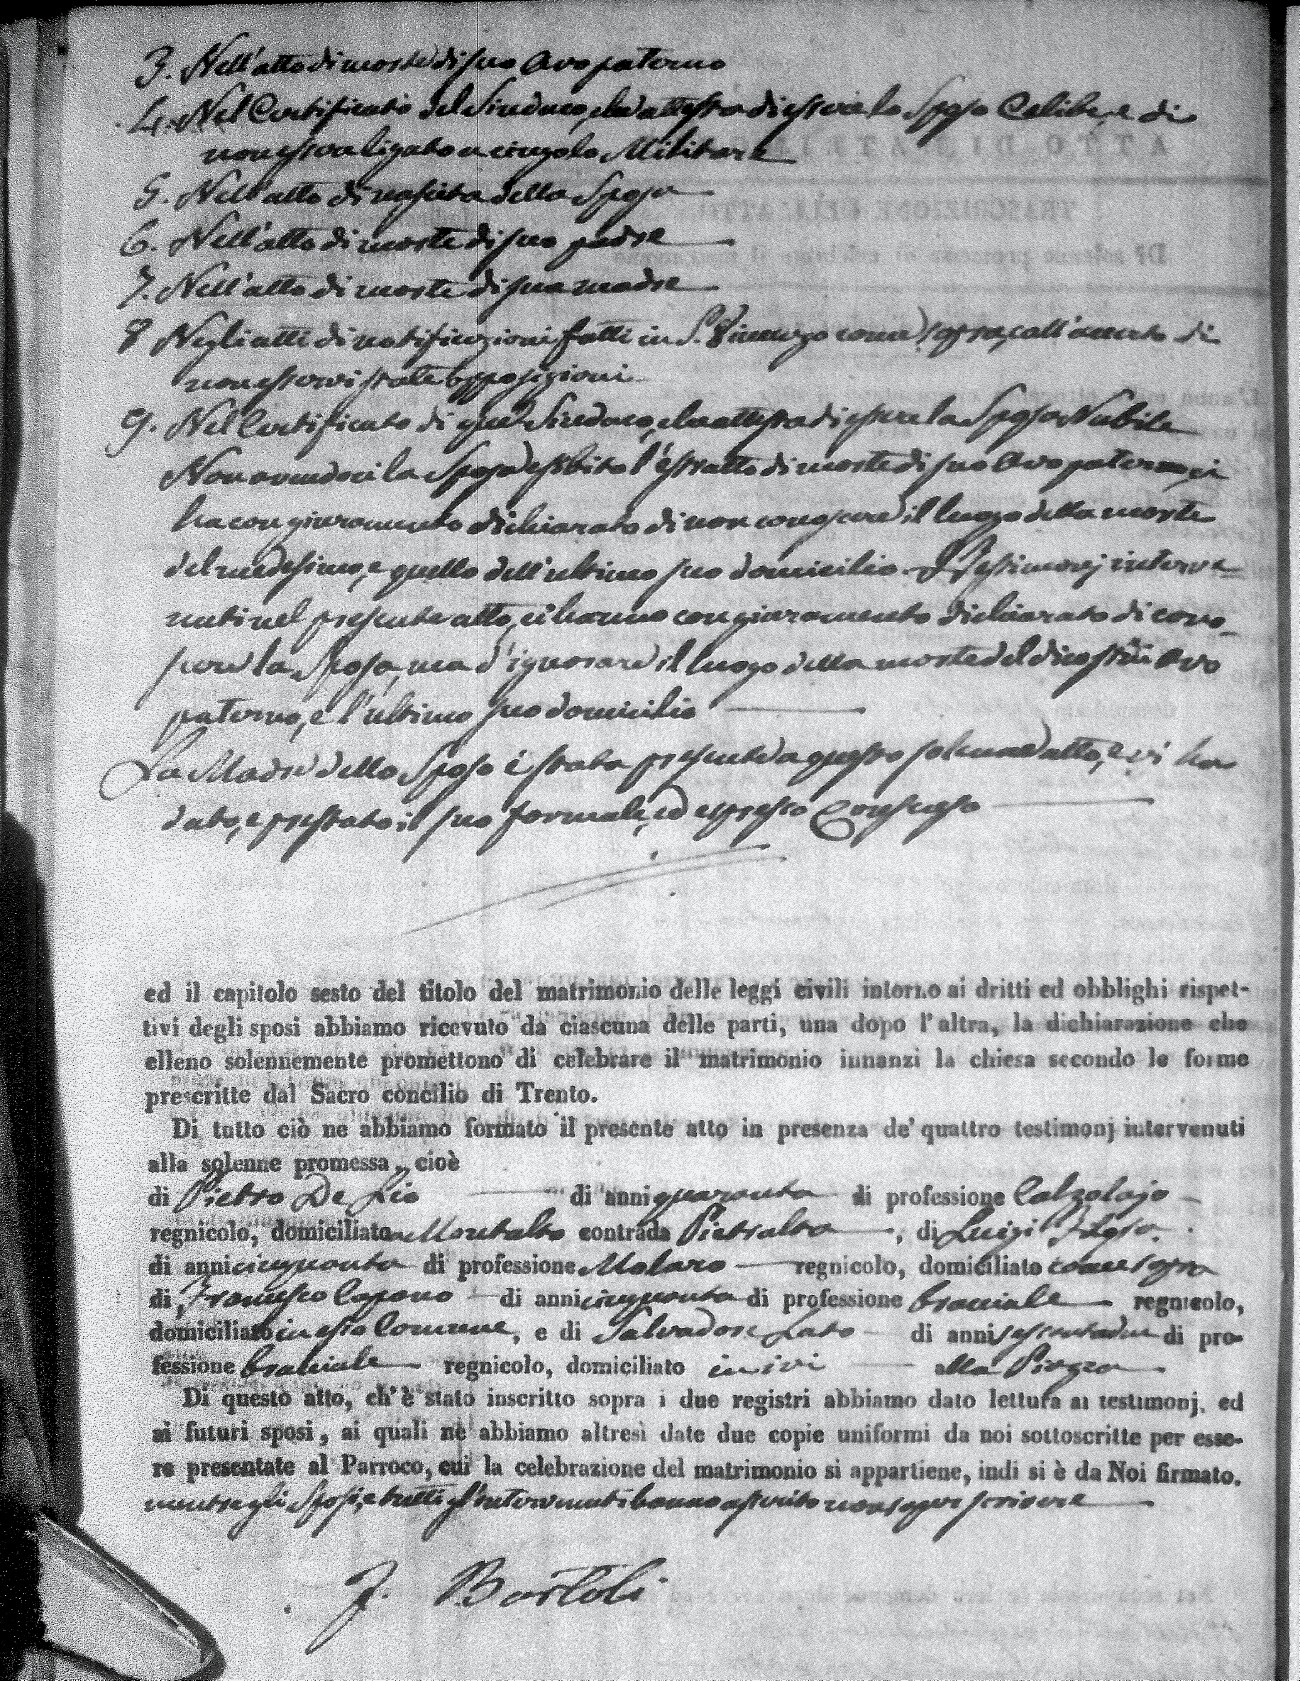 3. Nell'atto di morte di suo Avo paterno
4. Nel Certificato del Sindaco, che attesta di essere lo Sposo Celibe, e di
non essere ligato a cingolo Militare
5. Nell'atto di nascita della Sposa
6. Nell'atto di morte di suo padre
7. Nell'atto di morte di sua madre
8 Negli atti di notificazioni fatti in S. Vincenzo come sopra, coll'assento di
non esservi state opposizioni
9. Nel Certificato di quel Sindaco, che attesta di essere la Sposa Nubile
Non avendoci la Sposa esibito l'estratto di morte di suo Avo paterno, ci
ha con giuramento dichiarato di non conoscere il luogo della morte
del medesimo, e quello dell'ultimo suo domicilio. I Testimonj interve=
nuti nel presente atto, ci hanno con giuramento dichiarato di cono_
scere la Sposa, ma d'ignorare il luogo della morte del di costei Avo
paterno, e l'ultimo suo domicilio
La Madre dello Sposo è stata presente a questo solenne atto, e vi ha
dato, e prestato il suo formale, ed espresso Consenso
ed il capitolo sesto del titolo del matrimonio delle leggi civili intorno ai dritti ed obblighi rispet-
tivi degli sposi abbiamo ricevuto da ciascuna delle parti, una dopo l'altra, la dichiarazione che
elleno solennemente promettono di celebrare il matrimonio innanzi la chiesa secondo le forme
prescritte dal Sacro concilio di Trento.
Di tutto ciò ne abbiamo formato il presente atto in presenza de' quattro testimonj intervenuti
alla solenne promessa, cioè
di Pietro De Lio di anni quaranta di professione Calzolajo
regnicolo, domiciliato a Montalto contrada Pietralta, di Luigi
di anni cinquanta di professione Molaro regnicolo, domiciliato come sopra
di Francesco Capano di anni cinquanta di professione bracciale regnicolo,
domiciliato in esto Comune, e di Salvadore Lato di anni sessantadue di pro-
fessione bracciale regnicolo, domiciliato in ivi alla Piazza
Di questo atto, ch'è stato inscritto sopra i due registri abbiamo dato lettura ai testimonj, ed
ai futuri sposi, ai quali ne abbiamo altresì date due copie uniformi da noi sottoscritte per esse-
re presentate al Parroco, cui la celebrazione del matrimonio si appartiene, indi si è da Noi firmato.
mentre gli Sposi, e tutti gl'intervenuti hanno asserito non saper scrivere
F. Bartoli